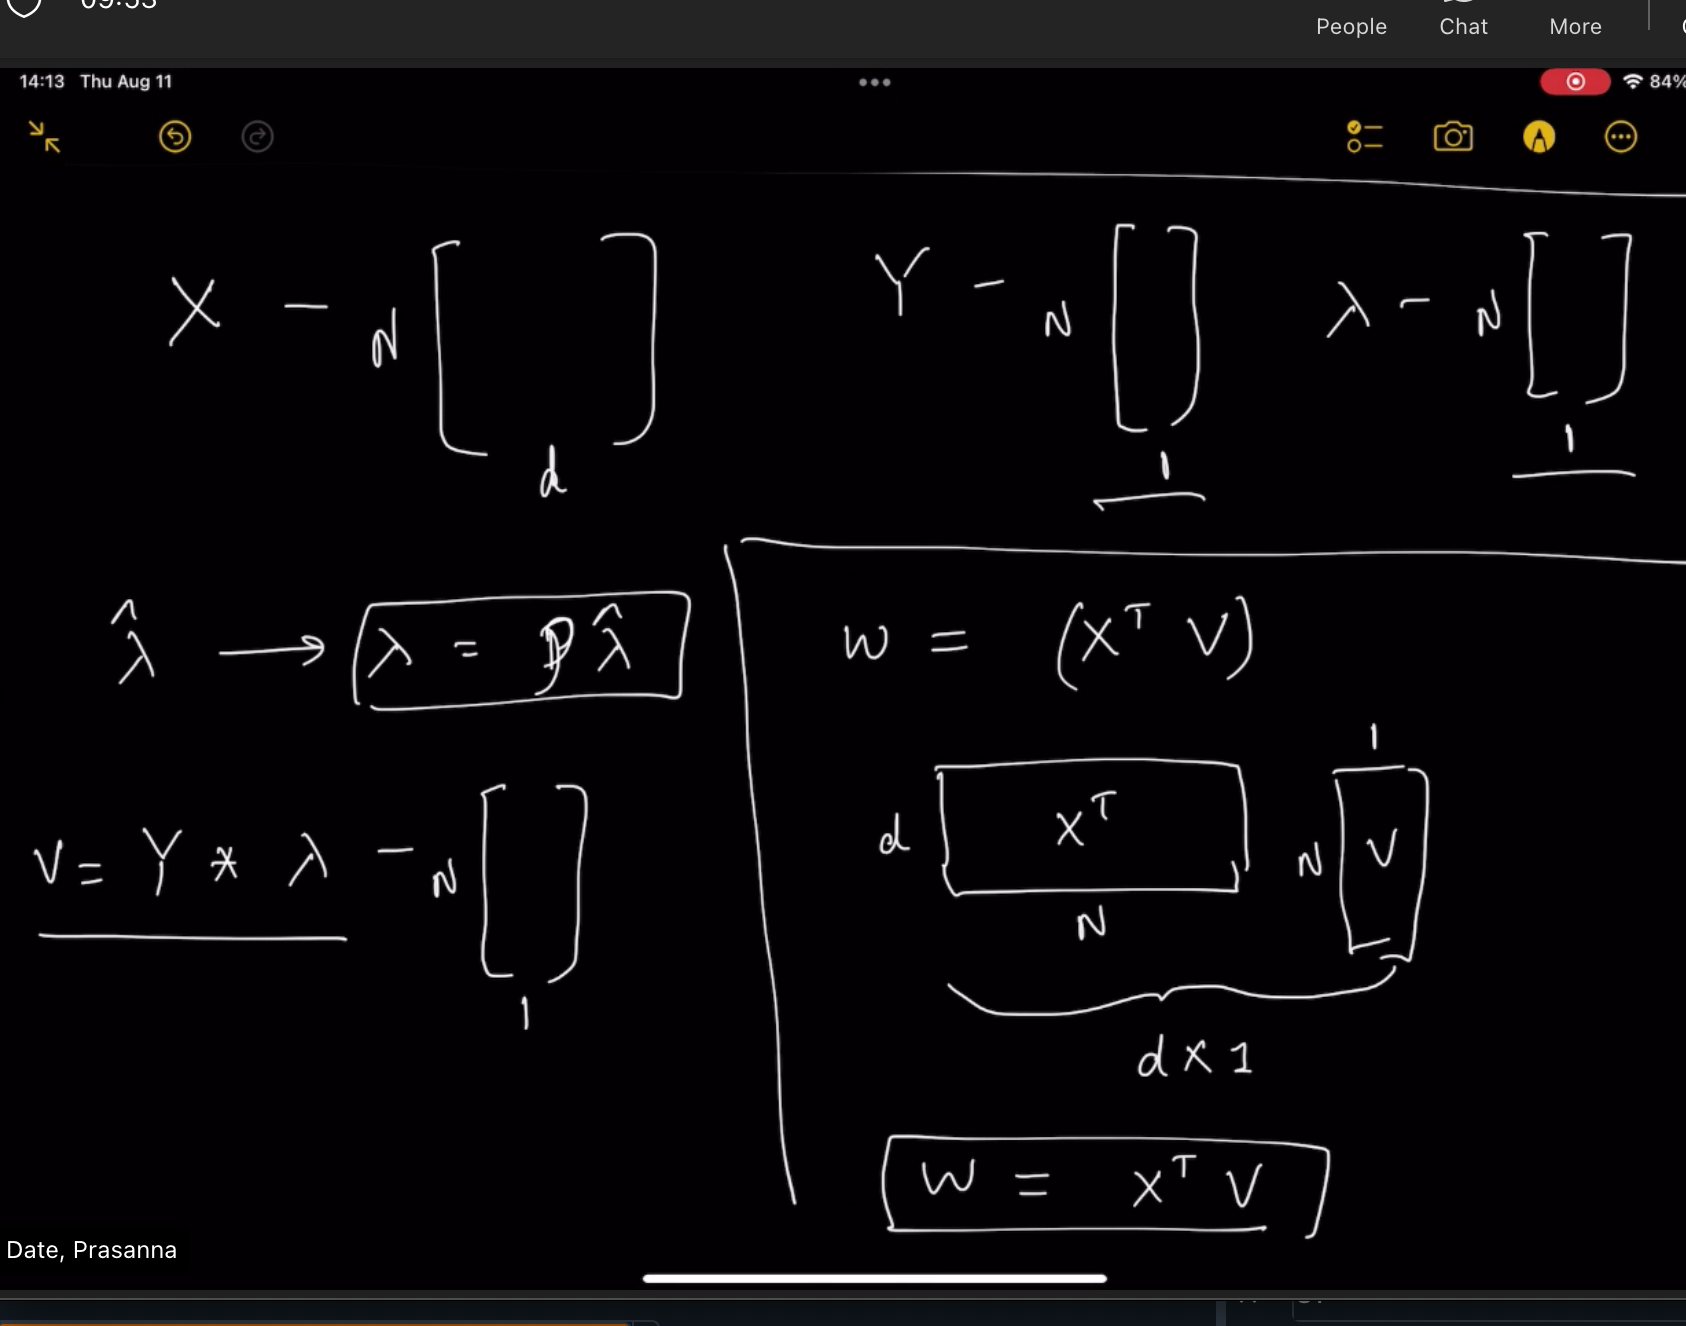 09:53
People Chat More
14:13 Thu Aug 11
84%
X - N [ ] d
Y - N [ ] 1
λ - N [ ] 1
λ̂ → λ = P λ̂
V = Y * λ - N [ ] 1
w = (X^T V)
d X^T N
N V 1
d x 1
w = X^T V
Date, Prasanna